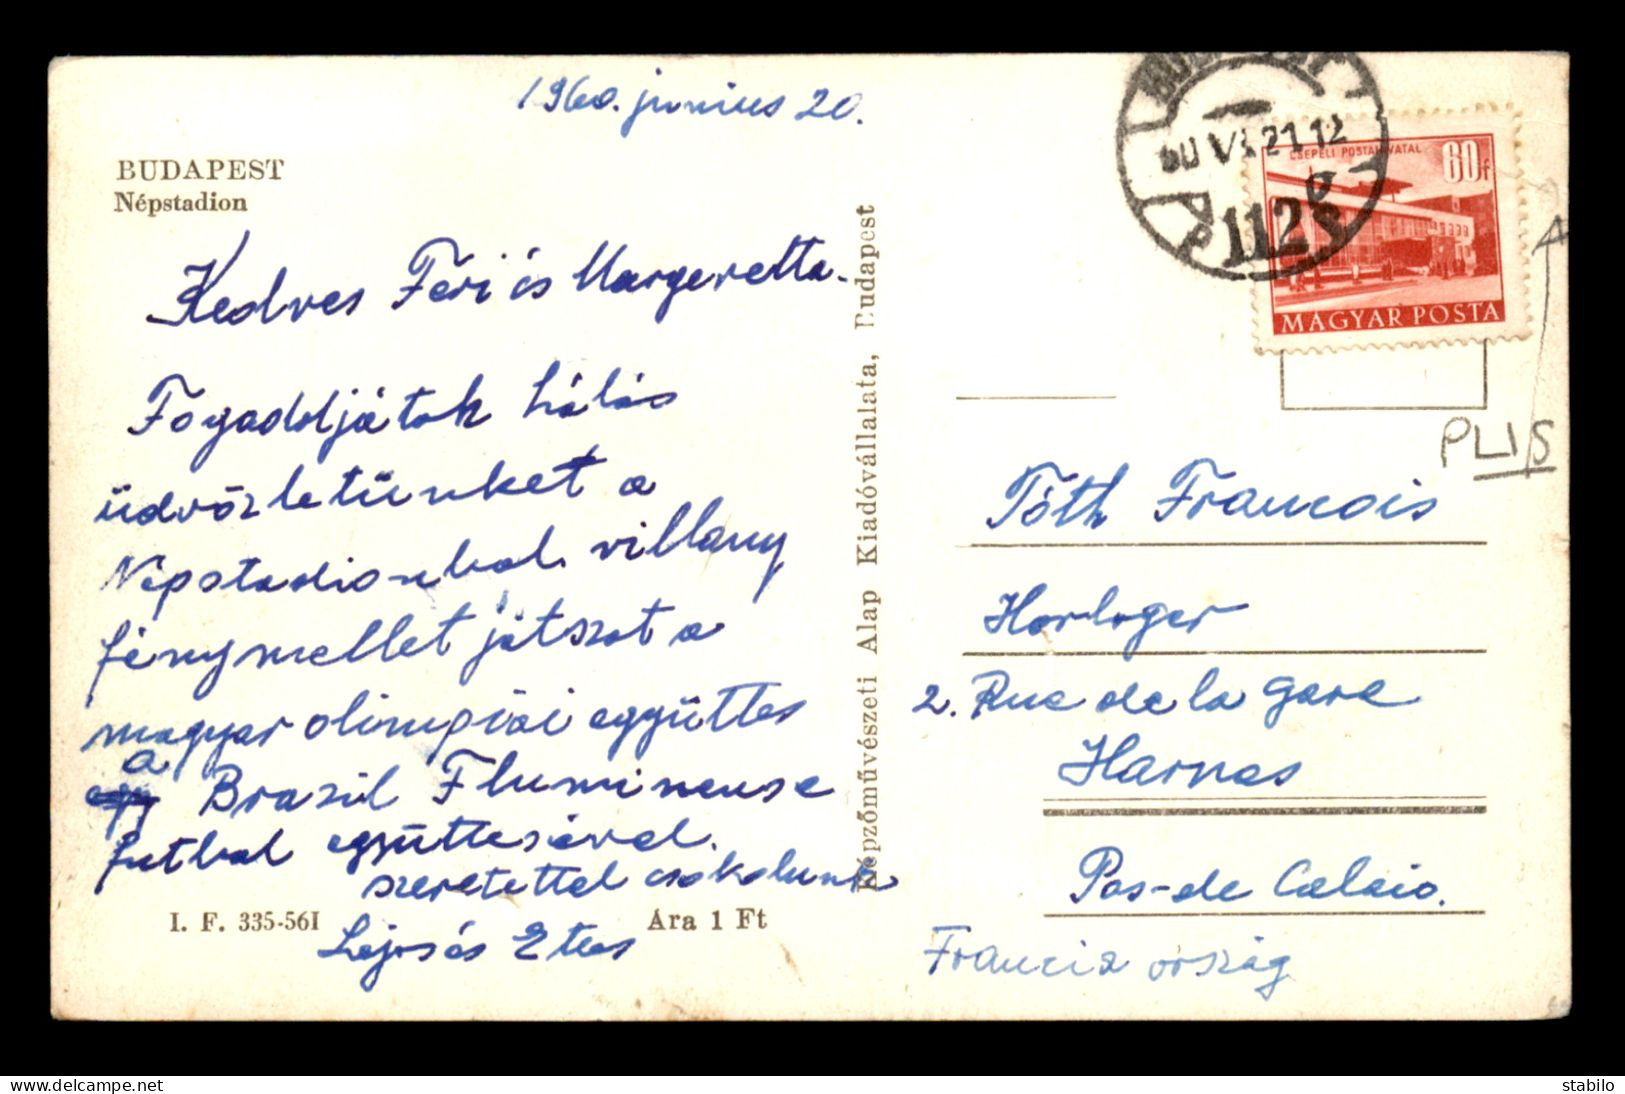 1960. június 20.
BUDAPEST
Népstadion
Kedves Feri és Margeretta.
Fogaddjátok hálás
üdvözletünket a
Népstadionbol villany
fénymellet játszot a
magyar olimpiai együttes
a
Brazil Fluminense
futbal együttesével.
szeretettel csokolunk
Lajos és
I. F. 335-561
Ára 1 Ft
Képzőművészeti Alap Kiadóvállalata, Budapest
60 VI 21 12
112
CSEPELI POSTAHIVATAL
60f
MAGYAR POSTA
PLIS
Tóth Francois
Horloger
2. Rue de la Gare
Harnes
Pas-de Calais.
Francia ország
delcampe.net
stabilo